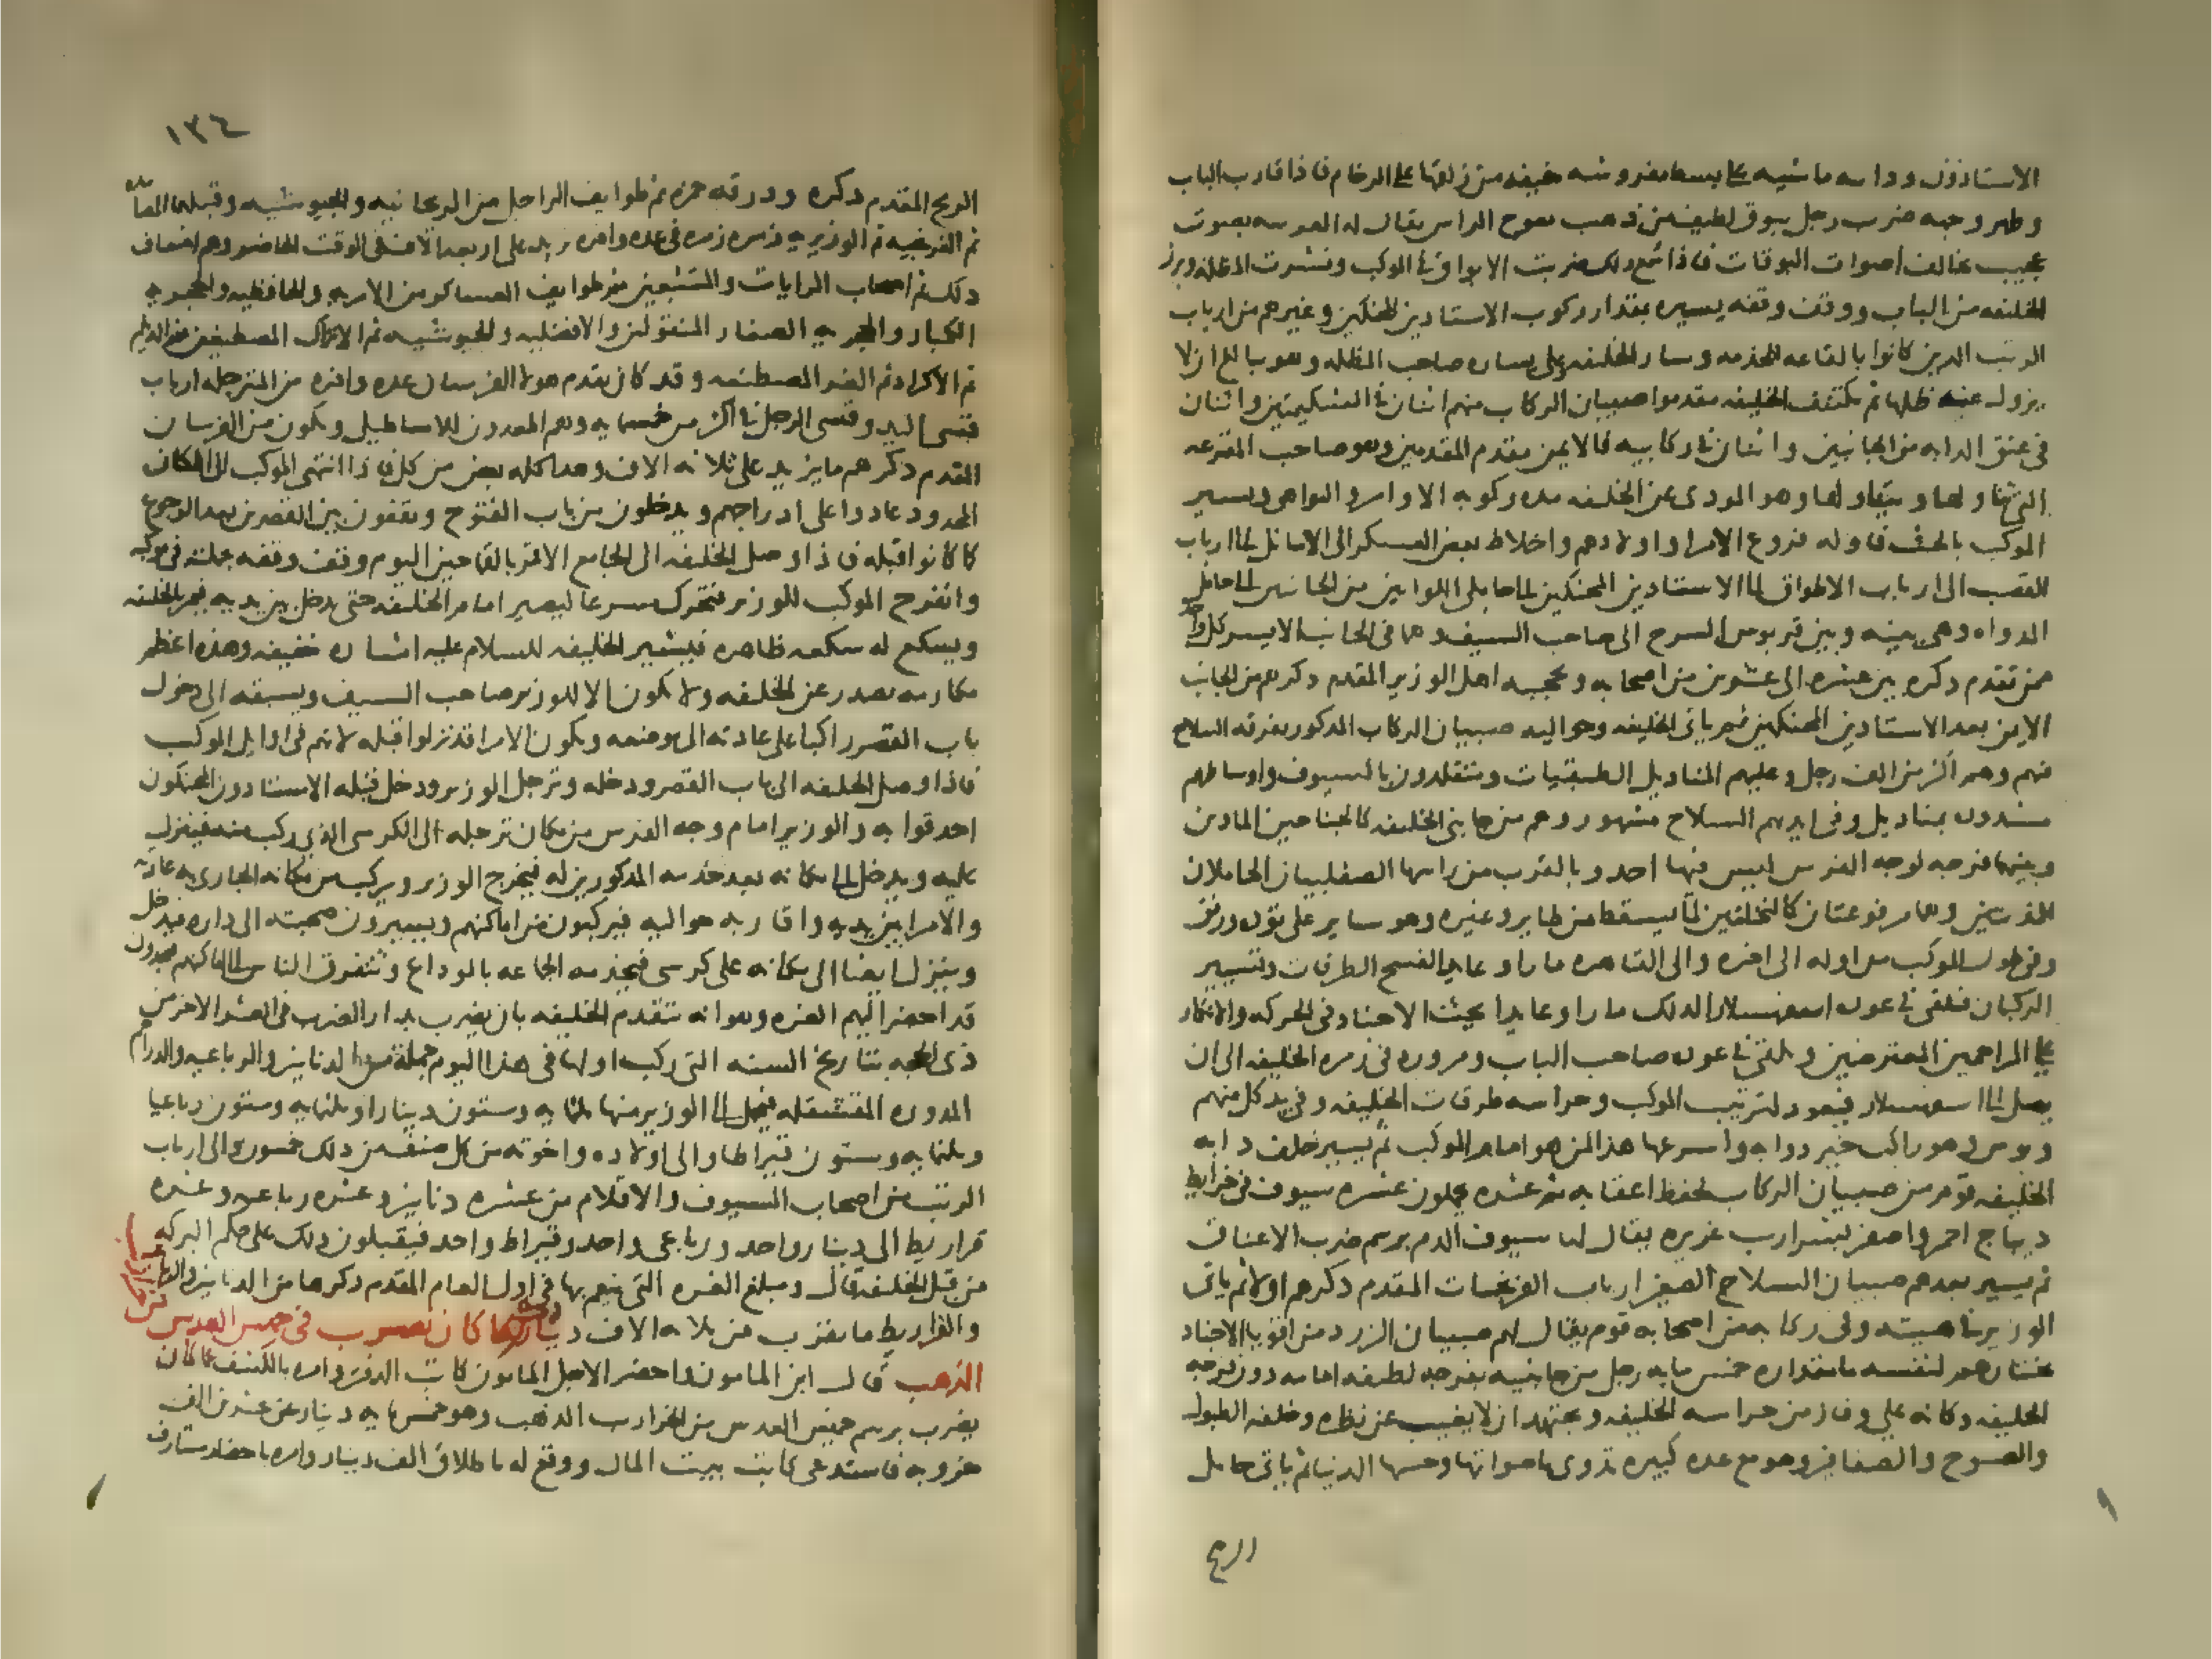 الاستاذون ودابته ماشيه على بسط مفروشه خيفه من زلقها على الرخام فاذا قارب الباب
وظهر وجهه ضرب رجل ببوق لطيف من ذهب معوج الراس يقال له الغريبه بصوت
عجيب يخالف اصوات البوقات فاذا سمع ذلك ضربت الابواق في الموكب ونشرت المظله وبرز
الخليفه من الباب ووقف وقفه يسيره بمقدار ركوب الاستادين المحنكين وغيرهم من ارباب
الرتب الدين كانوا بالقاعه للخدمه وسار الخليفه وعلى يساره صاحب المظله وهو يبالغ ان لا
يزول عنه ظلها ثم يكتنف الخليفه مقدموا صبيان الركاب منهم اثنان في الشكيمتين واثنان
في عنق الدابه من الجانبين واثنان في ركابيه فالايمن مقدم المقدمين وهو صاحب المقرعه
التي يناولها ويتناولها وهو المودي عن الخليفه مده ركوبه الاوامر والنواهي ويسير
الموكب بالحث فاوله فروع الامرا واولادهم واخلاط بعض العسكر الى الاماثل الى ارباب
القصب الى ارباب الاطواق الى الاستادين المحنكين الى حاملي اللوايين من الجانبين الى حامل
الدواه وهي بينه وبين قربوس السرج الى صاحب السيف وهما في الجانب الايسر كل واحد
ممن تقدم ذكره بين عشره الى عشرين من اصحابه ويحجبه اهل الوزير المقدم ذكرهم من الجانب
الايمن بعد الاستادين المحنكين ثم ياتي الخليفه وحواليه صبيان الركاب المذكور تفرقه السلاح
فيهم وهم اكثر من الف رجل وعليهم المناديل الطبقيات ويتقلدون بالسيوف واوساطهم
مشدوده بمناديل وفي ايديهم السلاح مشهور وهم من جانبي الخليفه كالجناحين المادين
وبينهما فرجه لوجه الفرس ليس فيها احد وبالقرب من راسها الصقلبيان الحاملان
للمذبتين وهما مرفوعتان كالنخلتين لما يسقط من طاير وغيره وهو ساير على تؤده ورفق
وفي طول الموكب من اوله الى اخره والي القاهره مارا وعايدا لفسح الطرقات وتسيير
الركبان فيلقى في عوده اسفهسلار الدلك مارا وعايدا يحث الاجناد في الحركه والانكار
على المزاحمين المعترضين ويلتقي في عوده صاحب الباب ومروره في زمره الخليفه الى ان
يصل الى الاسفهسلار فيعود لترتيب الموكب وحراسه طرقات الخليفه وفي يد كل منهم
دبوس وهو راكب خير دوابه واسرعها هذا لمن هو امام الموكب ثم يسير خلف دابه
الخليفه قوم من صبيان الركاب لحفظ اعقابه ثم عشره يحملون عشره سيوف في خرايط
ديباج احمر واصفر بشراريب غزيره يقال لها سيوف الدم برسم ضرب الاعناق
ثم يسير بعدهم صبيان السلاح الصغير ارباب الفرنجيات المقدم ذكرهم اولا ثم ياتي
الوزير في هيبته وفي ركابه من اصحابه قوم يقال لهم صبيان الزرد من اقويا الاجناد
يختارهم لنفسه ما مقداره خمس مايه رجل من جانبيه بفرجه لطيفه امامه دون فرجه
الخليفه وكانه على وفاز من حراسه الخليفه ويجتهد ان لا يغيب عن نظره وخلفه الطبول
والصنوج والصفافير وهو مع عده كبيره تدوي باصواتها وحسها الدنيا ثم ياتي حامل
الرمح
١٣٤
الرمح المقدم ذكره ودرقته حمزه ثم طوايف الراجل من الريحانيه والجيوشيه وقبلهما المصامده
ثم الفرنجيه ثم الوزيريه زمره زمره في عده وافره يزيد على اربعه الاف في الوقت الحاضر وهم اضعاف
ذلك ثم اصحاب الرايات والسبعين ثم طوايف العساكر من الامريه والحافظيه والحجريه
الكبار والحجريه الصغار المنقولين والافضليه والجيوشيه ثم الاتراك المصطنعين ثم الديلم
ثم الاكراد ثم الغز المصطنعه وقد كان تقدم هولا الفرسان عده وافره من المترجله ارباب
قسي اليد وقسي الرجل في اكثر من خمسمايه وهم المعدون للاساطيل ويكون من الفرسان
المقدم ذكرهم ما يزيد على ثلاثه الاف وهذا كله بعض من كل فاذا انتهى الموكب الى المكان
المحدود عادوا على ادراجهم ويدخلون من باب الفتوح ويقفون بين القصرين بعد الرجوع
كما كانوا قبله فاذا وصل الخليفه الى الجامع الاقمر بالقماحين اليوم وقف وقفه بجملته في موكبه
وانفرج الموكب للوزير فتحرك مسرعا ليصير امام الخليفه حتى يدخل بين يديه فيمر الخليفه
ويسكع له سكعه ظاهره فيشير الخليفه للسلام عليه اشاره خفيفه وهذه اعظم
مكارمه تصدر عن الخليفه ولا تكون الا للوزير صاحب السيف ويسبقه الى دخول
باب القصر راكبا على عادته الى موضعه ويكون الامرا قد نزلوا قبله لانهم في اوايل الموكب
فاذا وصل الخليفه الى باب القصر ودخله وترجل الوزير ودخل قبله الاستادون المحنكون
احدقوا به والوزير امام وجه الفرس من مكان ترجله الى الكرسي الذي ركب منه فينزل
عليه ويدخل الى مكانه بعد خدمه المذكورين له فيخرج الوزير ويركب من مكانه الجاري به عادته
والامرا بين يديه واقاربه حواليه فيركبون من اماكنهم ويسيرون صحبته الى داره فيدخل
وينزل ايضا الى مكانه على كرسي فيخدمه الجماعه بالوداع وتتفرق الناس الى اماكنهم فيجدون
قد احضر اليهم الغره وهو انه تتقدم الخليفه بان يضرب بدار الضرب في العشر الاخر من
ذي الحجه بتاريخ السنه التي ركب اولها في هذا اليوم جمله من الدنانير والرباعيه والدراهم
المدوره المقشقله فيحمل الى الوزير منها ثلثمايه وستون دينارا وثلثمايه وستون رباعيا
وثلثمايه وستون قيراطا والى اولاده واخوته من كل صنف من ذلك خمسون والى ارباب
الرتب من اصحاب السيوف والاقلام من عشره دنانير وعشره رباعيه وعشره
قراريط الى دينار واحد ورباعي واحد وقيراط واحد فيقبلون ذلك على حكم البركه
من قبل الخليفه قال ومبلغ الغره التي ينعم بها في اول العام المقدم ذكرها من الدنانير والرباعيه
والقراريط ما يقرب من ثلاثه الاف دينار ذكر ما كان يضرب في خميس العدس من خراريب
الذهب قال ابن المامون واحضر الاجل المامون كاتب الدفتر وامره بالكشف عما كان
يضرب برسم خميس العدس من الخراريب الذهب وهو خمسمايه دينار عن عشرين الف
خروبه فاستدعى كاتب بيت المال ووقع له باطلاق الف دينار وامره باحضار مشارف